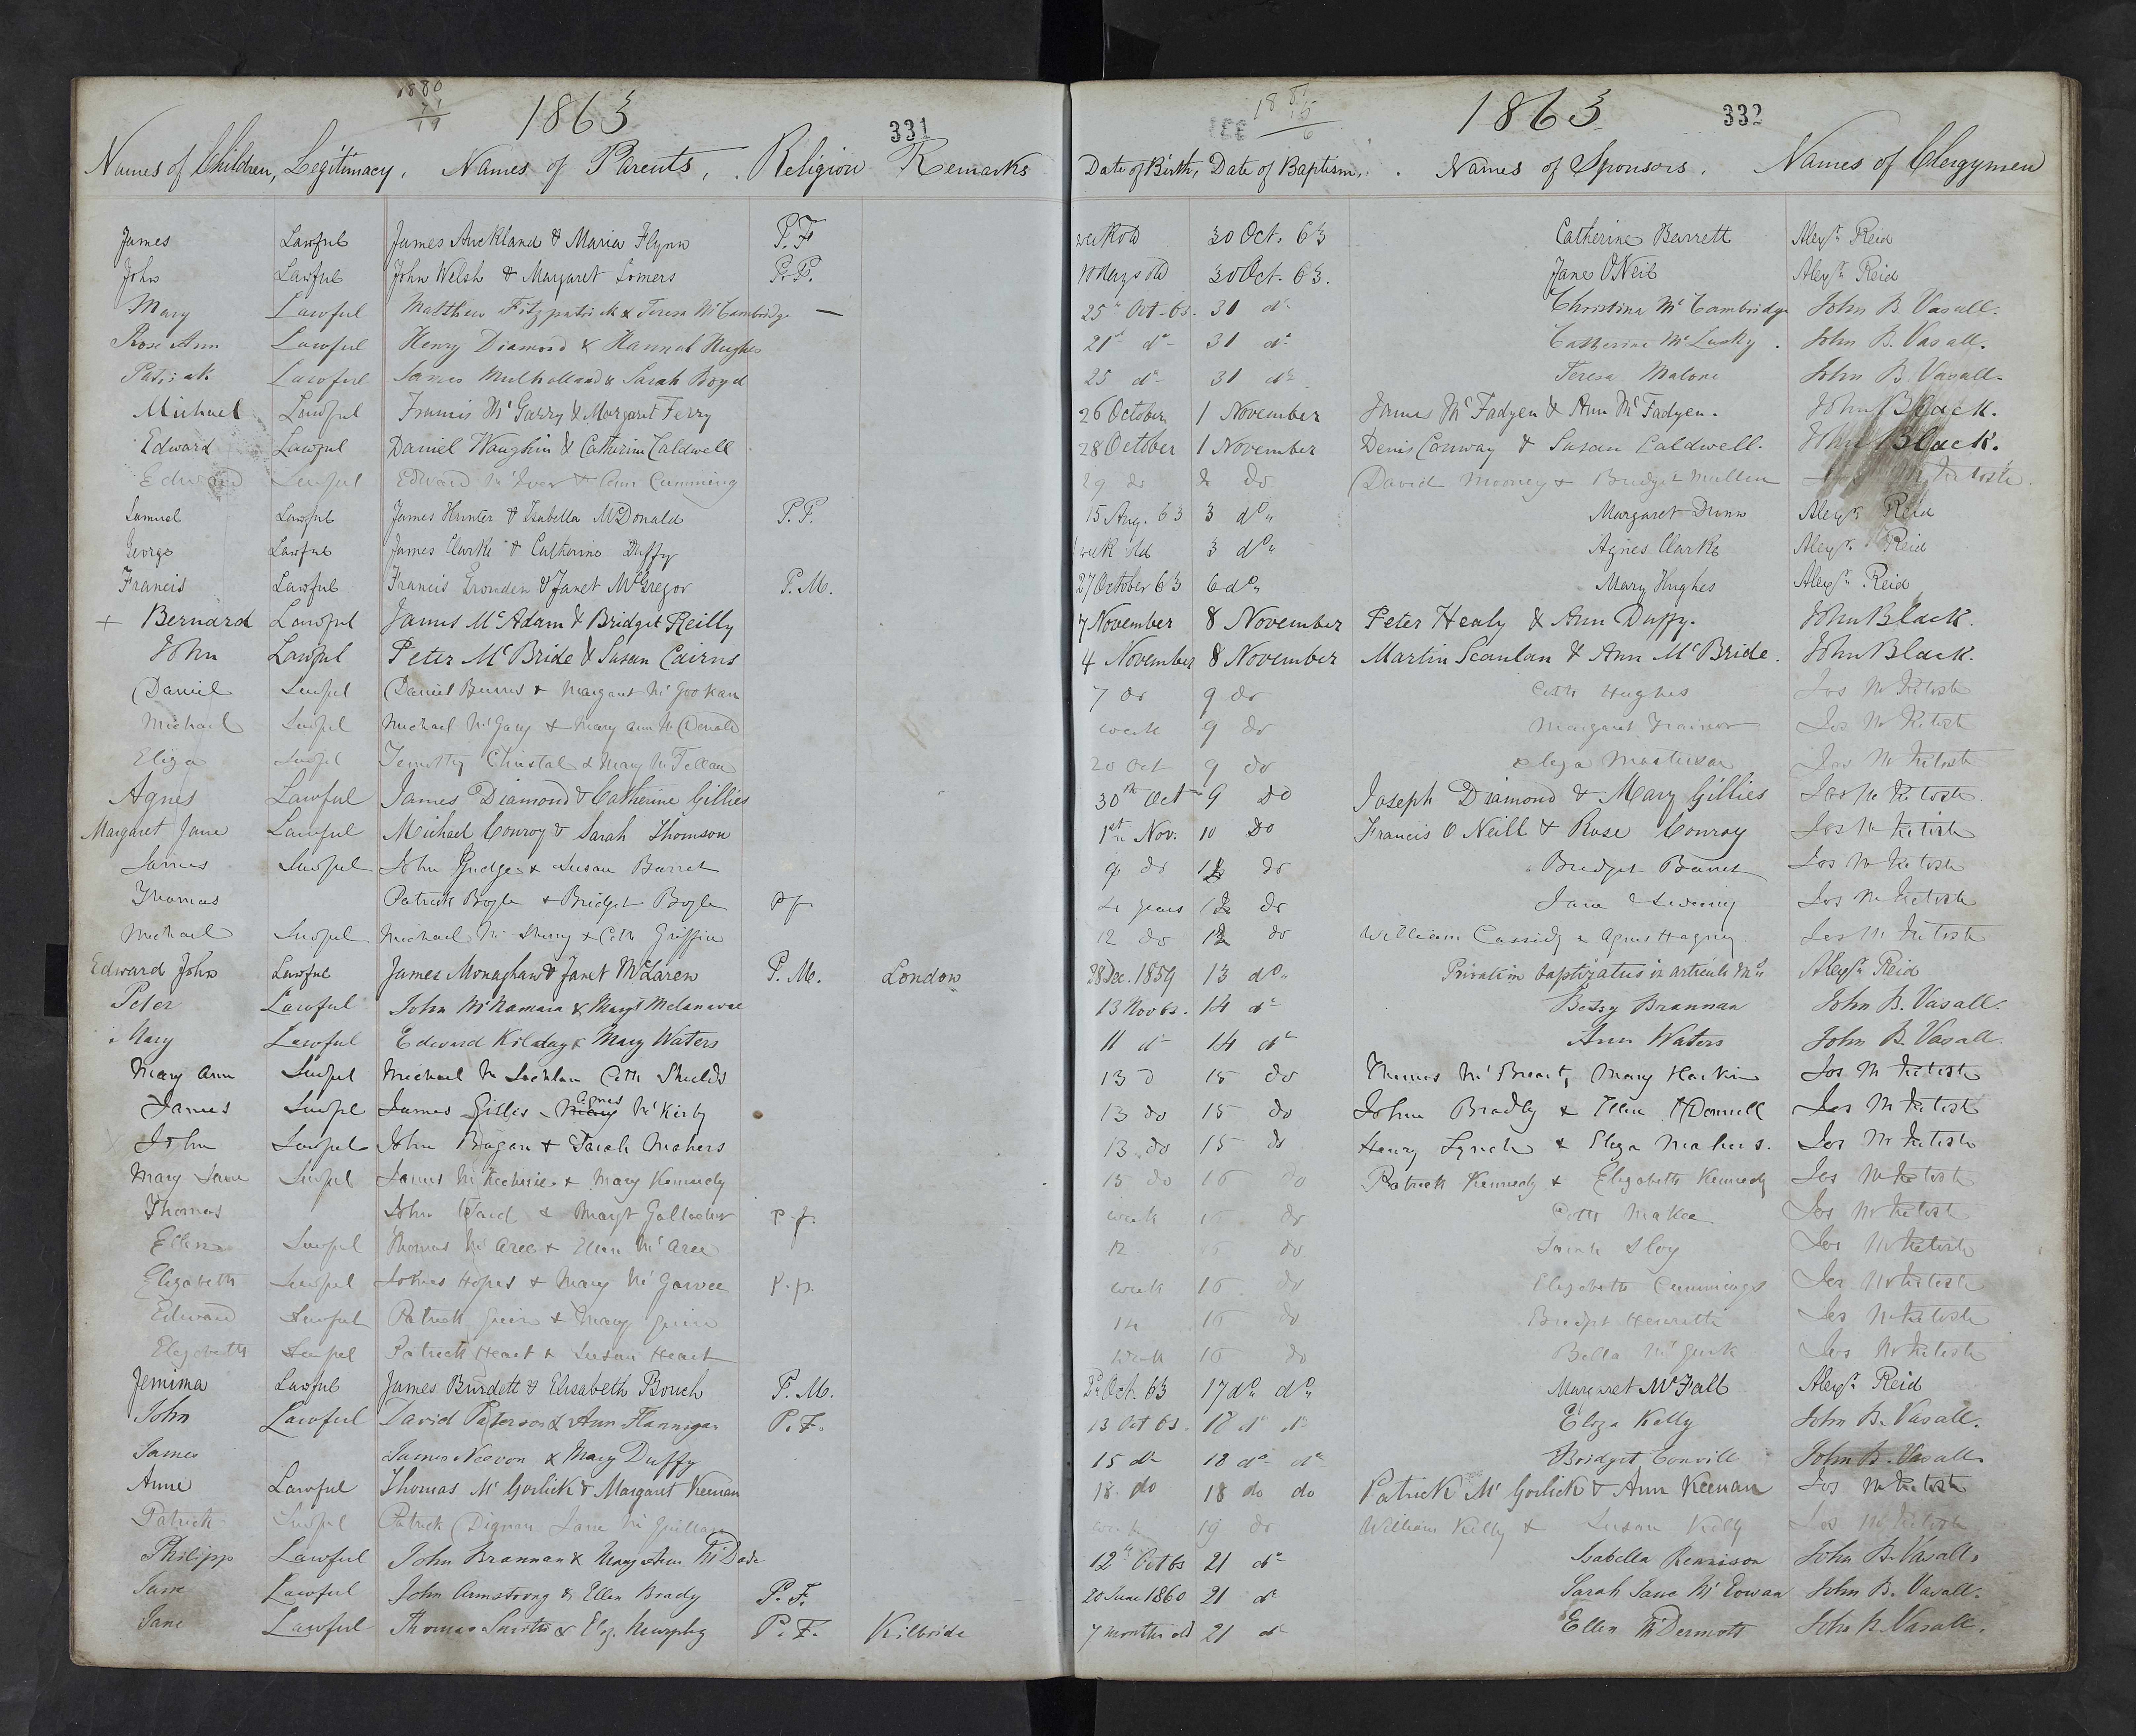 1880
11
1863
331
Names of Children, Legitimacy, Names of Parents, Religion Remarks
James Lawful James Auckland & Maria Flynn P. F.
John Lawful John Welsh & Margaret Somers P. P.
Mary Lawful Matthew Fitzpatrick & Teresa McCambridge —
Rose Ann Lawful Henry Diamond & Hannah Hughes
Patrick Lawful James Mulholland & Sarah Boyd
Michael Lawful Francis McGarry & Margaret Ferry
Edward Lawful Daniel Waughin & Catherine Caldwell
Edward Lawful Edward McIver & Ann Cumming
Samuel Lawful James Hunter & Isabella McDonald P. P.
George Lawful James Clarke & Catherine Duffy
Francis Lawful Francis & Janet McGregor P. M.
+ Bernard Lawful James McAdam & Bridget Reilly
John Lawful Peter McBride & Susan Cairns
Daniel Lawful Daniel Burns & Margaret McGookan
Michael Lawful Michael McGary & Mary Ann McDonald
Eliza Lawful Timothy Christal & Mary
Agnes Lawful James Diamond & Catherine Gillies
Margaret Jane Lawful Michael Conroy & Sarah Thomson
James Lawful John Judge & Susan Barret
Thomas Patrick Boyle & Bridget Boyle P f.
Michael Lawful Michael McSherry & Cath Griffin
Edward John Lawful James Monaghan & Janet McLaren P. M. London
Peter Lawful John McNamara & Margt
Mary Lawful Edward Kilday & Mary Waters
Mary Ann Lawful Michael McLachlan Cath Shields
James Lawful James Gillis Agnes McKirby
John Lawful John Bogan & Sarah Mahers
Mary Jane Lawful James McKechnie & Mary Kennedy
Thomas John Ward & Margt Gallacher P. f.
Ellen Lawful Thomas McAree & Ellen McAree
Elizabeth Lawful James Hopes & Mary McGarvee P. p.
Edward Lawful Patrick & Mary
Elizabeth Lawful Patrick Heart & Susan Heart
Jemima Lawful James Burdett & Elisabeth Bouch P. M.
John Lawful David Paterson & Ann Flannigan P. F.
James James Neevon & Mary Duffy
Anne Lawful Thomas McGorlick & Margaret Keenan
Patrick Lawful Patrick Dignan Jane
Philipp Lawful John Brannan & Mary Ann McDade
Jane Lawful John Armstrong & Ellen Brady P. F.
Jane Lawful Thomas Smith & Eliz. Murphy P. F. Kilbride
1863
332
Date of Birth, Date of Baptism, Names of Sponsors, Names of Clergymen
week old 30 Oct. 63 Catherine Barrett Alexr. Reid
10 days old 30 Oct. 63. Jane O'Neil Alexr. Reid
25th Oct. 63. 31 do Christina McCambridge John B. Vasall.
21st do 31 do Catherine McLusky. John B. Vasall.
25 do 31 do Teresa Malone John B. Vasall.
26 October 1 November James McFadyen & Ann McFadyen. John Black.
28 October 1 November Denis Conway & Susan Caldwell. John Black.
29 do 2 do David Mooney & Bridget Mullen McIntosh.
15 Aug. 63 3 do Margaret Dunn Alexr. Reid
1 week old 3 do Agnes Clarke Alexr. Reid
27 October 63 6 do Mary Hughes Alexr. Reid
7 November 8 November Peter Healy & Ann Duffy. John Black.
4 November 8 November Martin Scanlan & Ann McBride. John Black.
7 do 9 do Cath Hughes Jos McIntosh
week 9 do Margaret Trainor Jos McIntosh
20 Oct 9 do Eliza Masterson Jos McIntosh
30th Oct 9 Do Joseph Diamond & Mary Gillies Jos McIntosh
1st Nov. 10 Do Francis O Neill & Rose Conroy Jos McIntosh
9 do 12 do Bridget Barret Jos McIntosh
4 years 12 do Jane Jos McIntosh
12 do 12 do William Cassidy & Agnes Hagney Jos McIntosh
28 Dec. 1859 13 do Privatim baptizatus in articulo Alexr. Reid
13 Nov 63. 14 do Betsy Brannan John B. Vasall.
11 do 14 do Ann Waters John B. Vasall.
13 D 15 do Thomas McBreart, Mary Harkin Jos McIntosh
13 do 15 do John Bradly & Ellen McDonnell Jos McIntosh
13 do 15 do Henry Lynch & Eliza Mahers. Jos McIntosh
15 do 16 do Patrick Kennedy & Elizabeth Kennedy Jos McIntosh
week 16 do Cath McKee Jos McIntosh
12 do Sarah Sloy Jos McIntosh
week 16 do Elizabeth Cummings Jos McIntosh
14 16 do Bridget Jos McIntosh
week 16 do Bella McGurk Jos McIntosh
Oct. 63 17 do do Margaret McFall Alexr. Reid
13 Oct 63. 18 do do Eliza Kelly John B. Vasall.
15 do 18 do do Bridget Convill John B. Vasall.
18 do 18 do do Patrick McGorlick & Ann Keenan Jos McIntosh
week 19 do William Kelly & Susan Kelly Jos McIntosh
12th Oct 63 21 do Isabella Kennison John B. Vasall.
20 June 1860 21 do Sarah Jane McCowan John B. Vasall.
7 months old 21 do Ellen McDermott John B. Vasall.